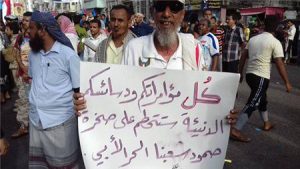 كُل مؤامراتكم ودسائسكم
الدنيئة ستتحطم على صخرة
صمود شعبنا الحر الأبي